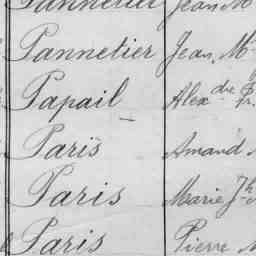 Pannetier Jean M
Pannetier Jean, M
Papail Alex dre
Paris Amand
Paris Marie Jh
Paris Pierre